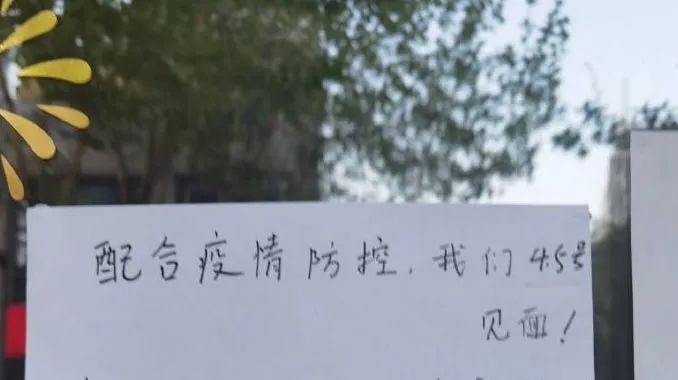 配合疫情防控，我们4.5号
见面！